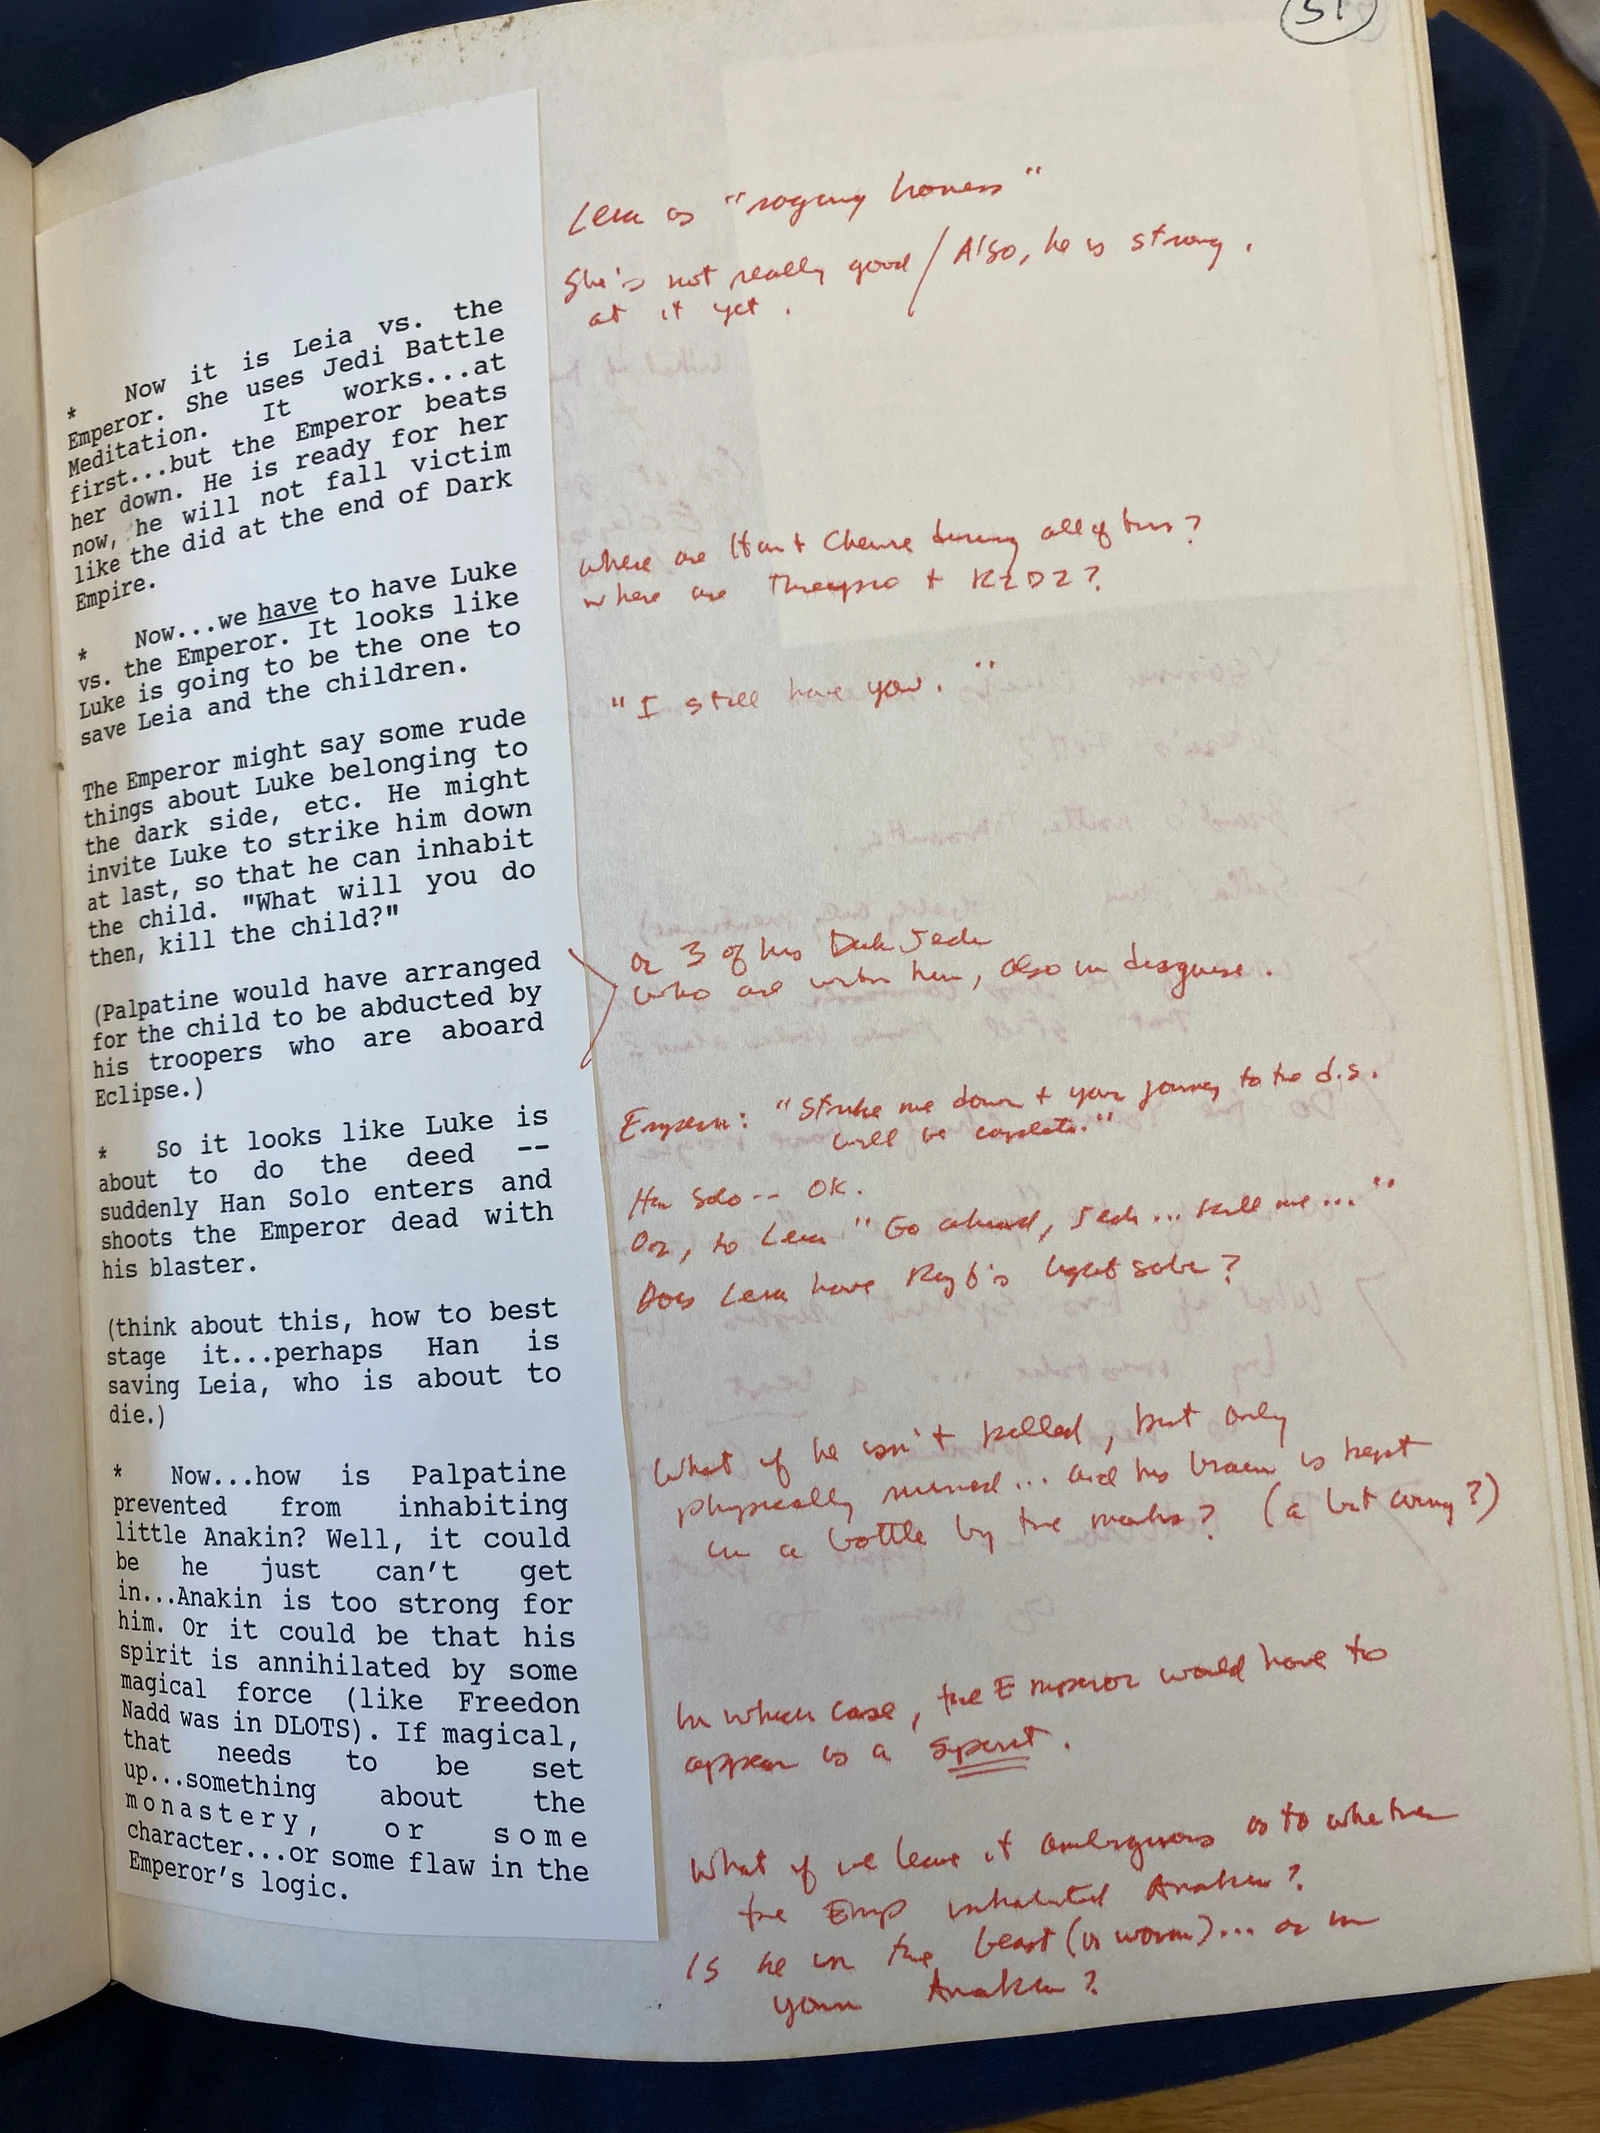 51
* Now it is Leia vs. the
Emperor. She uses Jedi Battle
Meditation. It works...at
first...but the Emperor beats
her down. He is ready for her
now, he will not fall victim
like the did at the end of Dark
Empire.
* Now...we have to have Luke
vs. the Emperor. It looks like
Luke is going to be the one to
save Leia and the children.
The Emperor might say some rude
things about Luke belonging to
the dark side, etc. He might
invite Luke to strike him down
at last, so that he can inhabit
the child. "What will you do
then, kill the child?"
(Palpatine would have arranged
for the child to be abducted by
his troopers who are aboard
Eclipse.)
* So it looks like Luke is
about to do the deed --
suddenly Han Solo enters and
shoots the Emperor dead with
his blaster.
(think about this, how to best
stage it...perhaps Han is
saving Leia, who is about to
die.)
* Now...how is Palpatine
prevented from inhabiting
little Anakin? Well, it could
be he just can't get
in...Anakin is too strong for
him. Or it could be that his
spirit is annihilated by some
magical force (like Freedon
Nadd was in DLOTS). If magical,
that needs to be set
up...something about the
monastery, or some
character...or some flaw in the
Emperor's logic.
Leia as "raging
She's not really good / Also, he is strong.
at it yet.
where are Han + Chewie during all of this?
where are Threepio + R2D2?
"I still have you."
or 3 of his Dark Jedi
who are with him, also in disguise.
Emperor: "Strike me down + your journey to the d.s.
will be complete."
Han Solo -- OK.
Or, to Leia "Go ahead, Jedi... kill me..."
Does Leia have Rayf's lightsabe?
What if he isn't killed, but only
physically ruined... and his brain is kept
in a bottle by the monks? (a bit corny?)
In which case, the Emperor would have to
appear as a spirit.
What if we leave it ambiguous as to whether
the Emp inhabited Anakin?
Is he in the beast (or worm)... or in
Anakin?